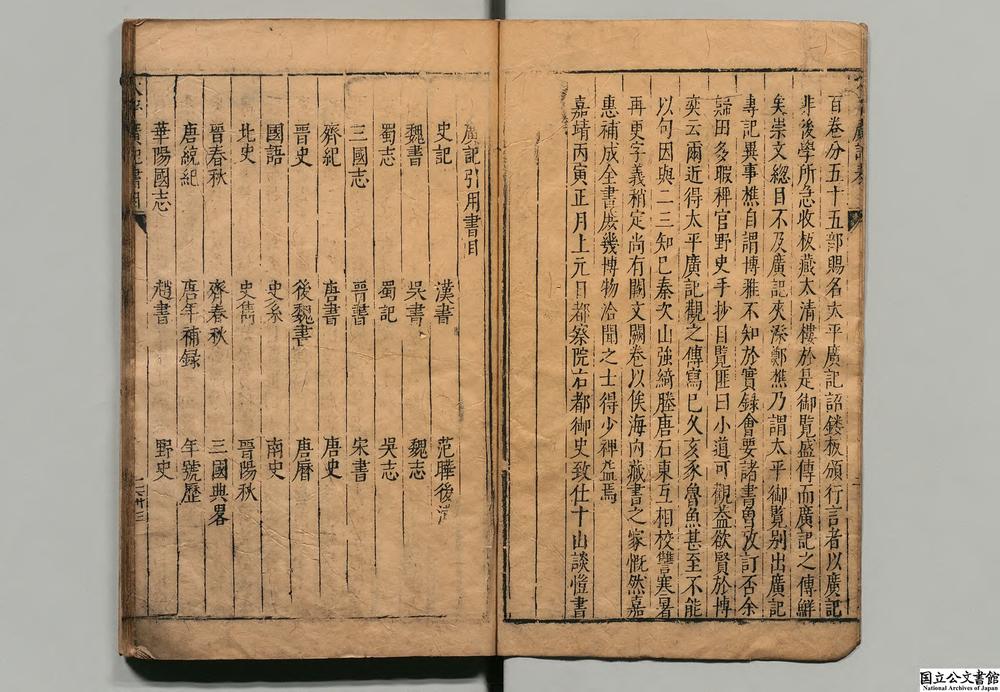 百卷分五十五部賜名太平廣記詔鏤板頒行言者以廣記
非後學所急收板藏太清樓於是御覽盛傳而廣記之傳鮮
矣崇文總目不及廣記夾漈鄭樵乃謂太平御覽别出廣記
專記異事樵自謂博雅不知於實録會要諸書曽攷訂否余
歸田多暇稗官野史手抄目覽匪曰小道可觀蓋欲賢於博
奕云爾近得太平廣記觀之傳寫已久亥豕魯魚甚至不能
以句因與二三知已秦次山強綺塍唐石東互相校讐寒暑
再更字義稍定尚有闕文闕卷以俟海内藏書之家慨然嘉
惠補成全書庶幾博物洽聞之士得少禆益焉
嘉靖丙寅正月上元日都察院右都御史致仕十山談愷書
廣記引用書目
史記 漢書 范曄後漢
魏書 吳書 魏志
蜀志 蜀記 吳志
三國志 晉書 宋書
齊紀 唐書 唐史
晉史 後魏書 唐曆
國語 史系 南史
北史 史雋 晉陽秋
晉春秋 齊春秋 三國典畧
唐統紀 唐年補録 年號歷
華陽國志 趙書 野史
国立公文書館
National Archives of Japan